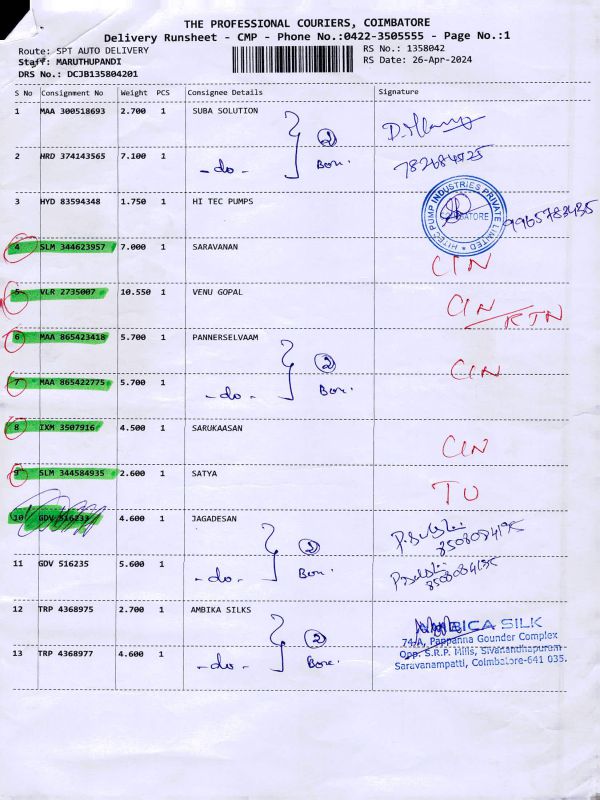 THE PROFESSIONAL COURIERS, COIMBATORE
Delivery Runsheet - CMP - Phone No.:0422-3505555 - Page No.:1
Route: SPT AUTO DELIVERY RS No.: 1358042
Staff: MARUTHUPANDI RS Date: 26-Apr-2024
DRS No.: DCJB135804201
S No Consignment No Weight PCS Consignee Details Signature
1 MAA 300518693 2.700 1 SUBA SOLUTION
2 Box.
2 HRD 374143565 7.100 1 -do-
3 HYD 83594348 1.750 1 HI TEC PUMPS
HITEC PUMP INDUSTRIES PRIVATE LIMITED
COIMBATORE
4 SLM 344623957 7.000 1 SARAVANAN
CIN
5 VLR 2735007 10.550 1 VENU GOPAL
CIN
RTN
6 MAA 865423418 5.700 1 PANNERSELVAAM
2 Box. CIN
7 MAA 865422775 5.700 1 -do-
8 IXM 3507916 4.500 1 SARUKAASAN
CIN
9 SLM 344584935 2.600 1 SATYA
TU
10 GDV 516233 4.600 1 JAGADESAN
2 Box.
11 GDV 516235 5.600 1 -do-
12 TRP 4368975 2.700 1 AMBIKA SILKS
2 Box.
AMBICA SILK
74-A, Pappanna Gounder Complex
Opp. S.R.P. Mills, Sivanandhapuram
Saravanampatti, Coimbatore-641 035.
13 TRP 4368977 4.600 1 -do-